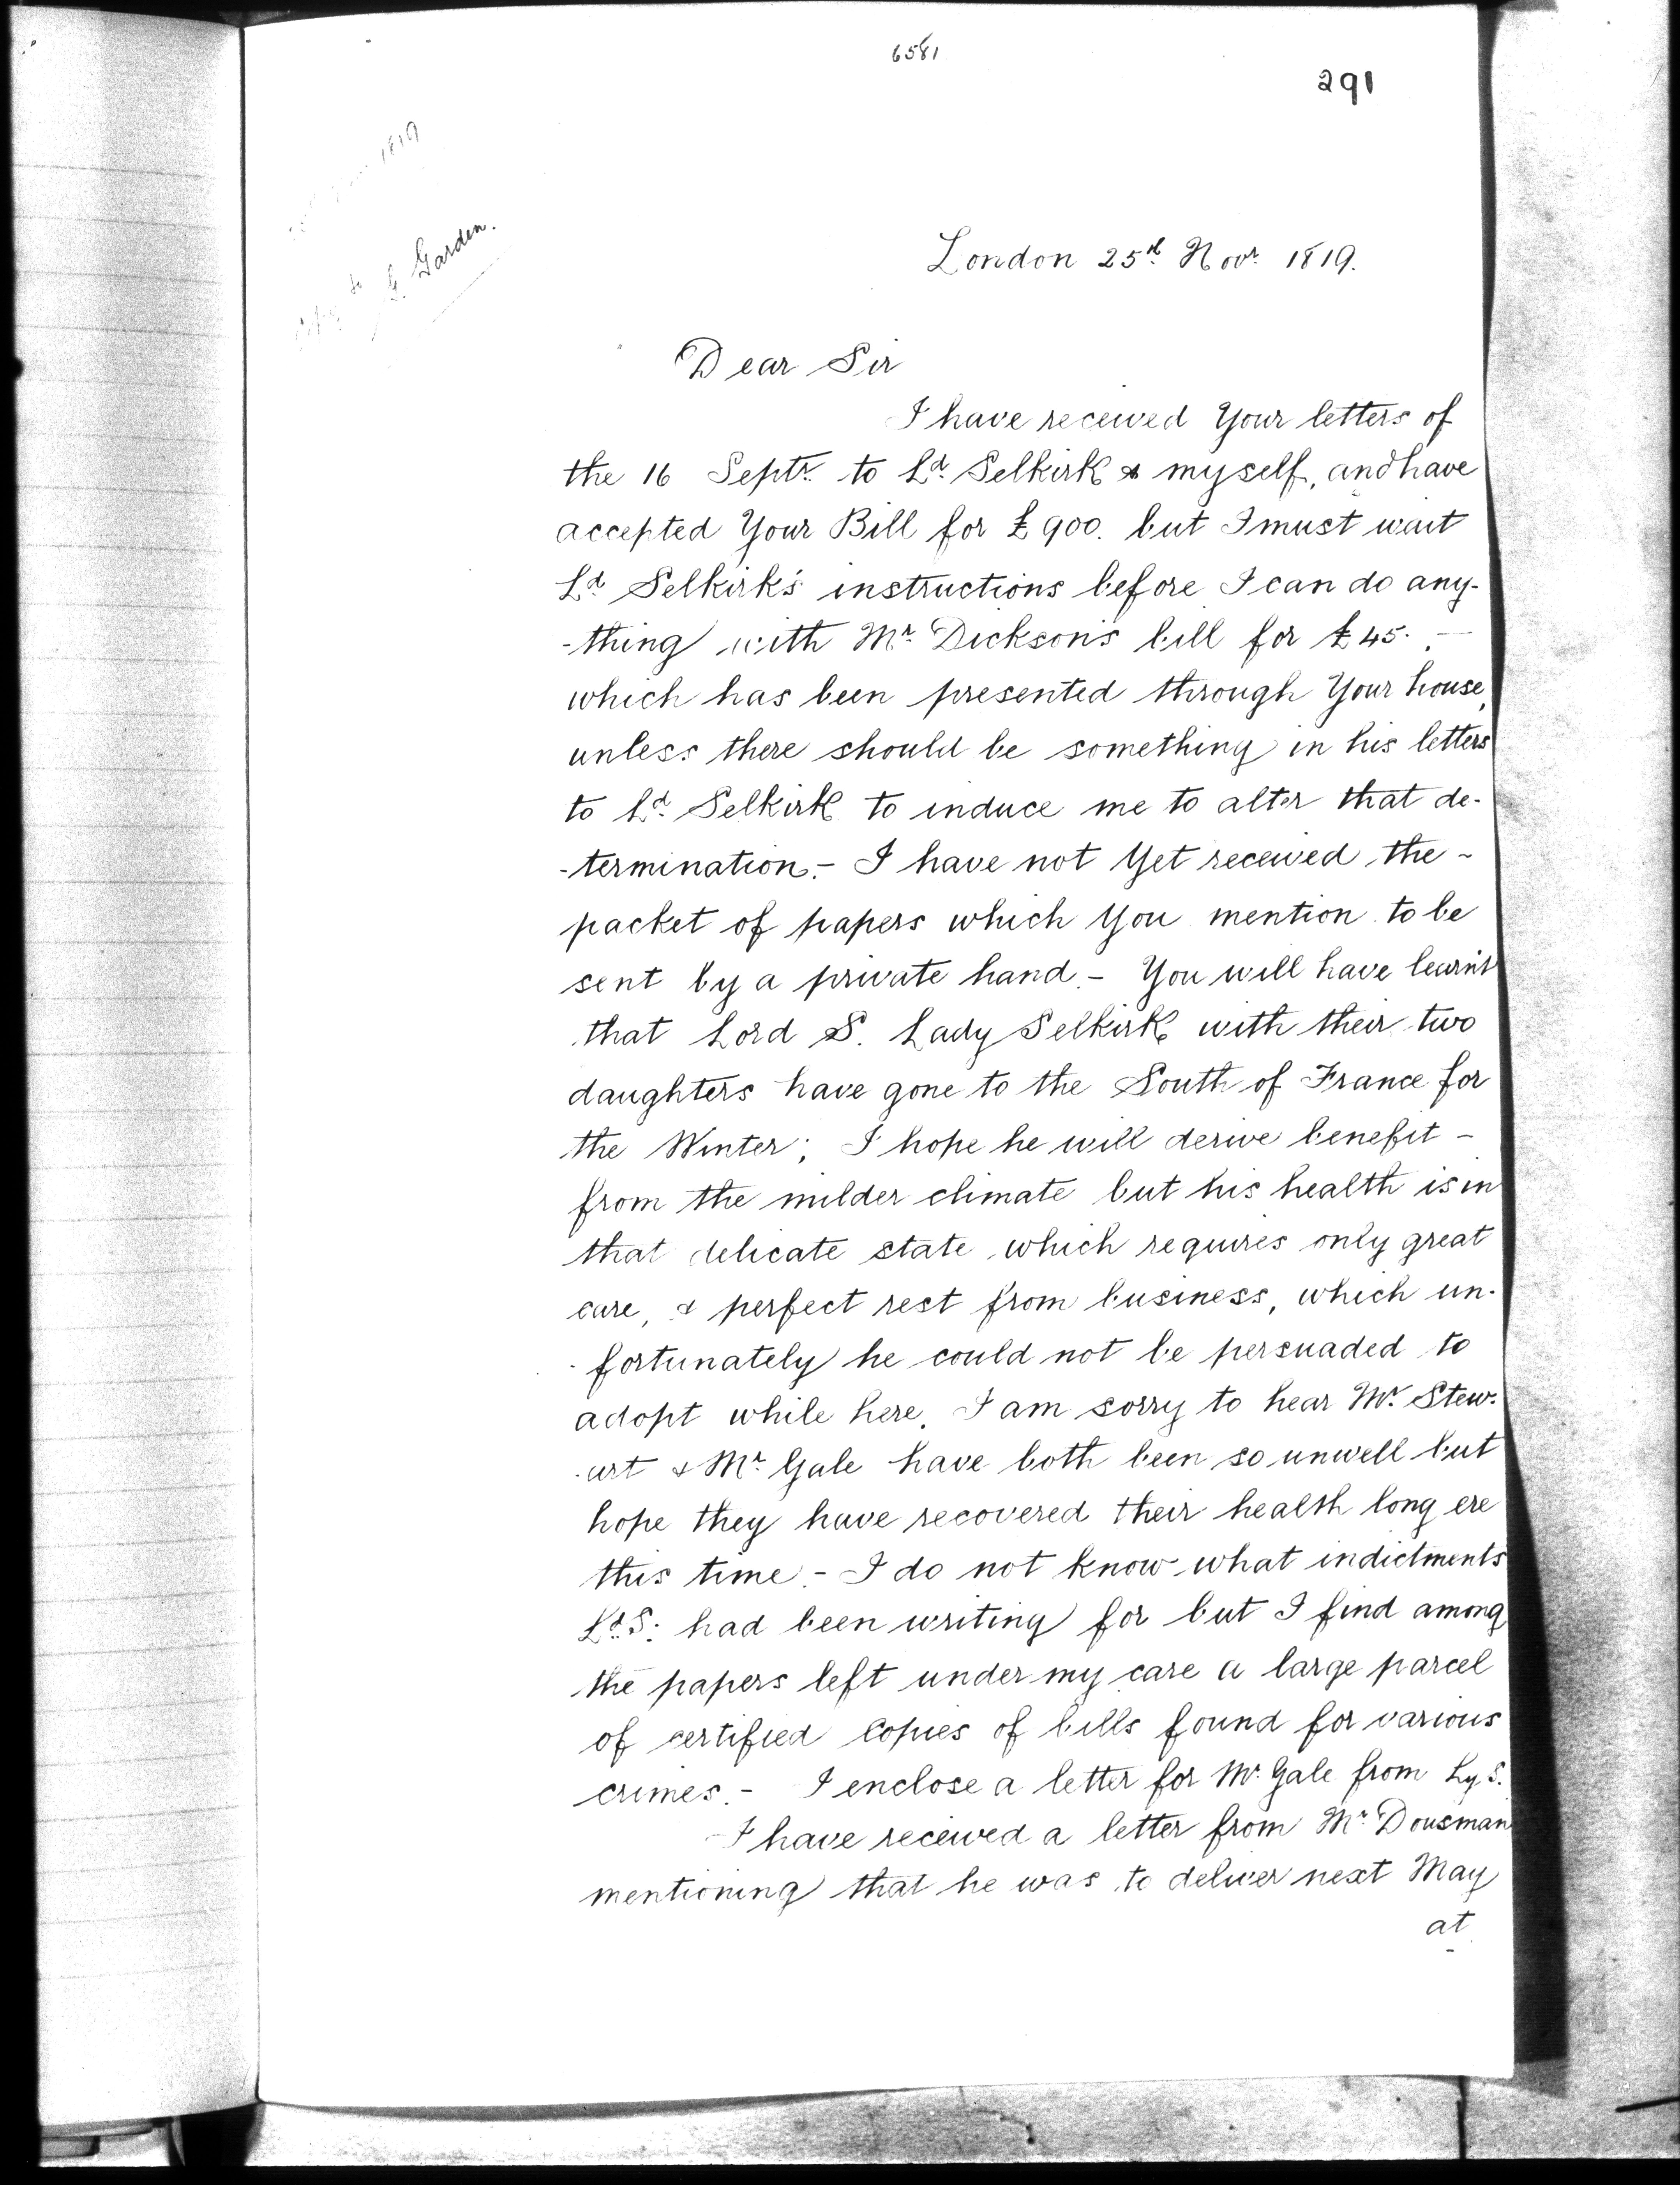 6581
291
1819
to
G. Garden.
London 25th Novr. 1819.
Dear Sir
I have received Your letters of
the 16 Septr. to Ld. Selkirk & myself, and have
accepted Your Bill for £900. but I must wait
Ld Selkirk's instructions before I can do any-
-thing with Mr. Dickson's bill for £45. —
which has been presented through Your house,
unless there should be something in his letters
to Ld. Selkirk to induce me to alter that de-
-termination. - I have not Yet received the -
packet of papers which You mention to be
sent by a private hand. - You will have learnt
that Lord S. Lady Selkirk with their two
daughters have gone to the South of France for
the Winter; I hope he will derive benefit -
from the milder climate but his health is in
that delicate state which requires only great
care, & perfect rest from business, which un-
-fortunately he could not be persuaded to
adopt while here. I am sorry to hear Mr. Stew-
-art & Mr. Gale have both been so unwell but
hope they have recovered their health long ere
this time. - I do not know what indictments
Ld. S: had been writing for but I find among
the papers left under my care a large parcel
of certified Copies of bills found for various
crimes. - I enclose a letter for Mr. Gale from Ly S.
- I have received a letter from Mr. Dousman
mentioning that he was to deliver next May
at